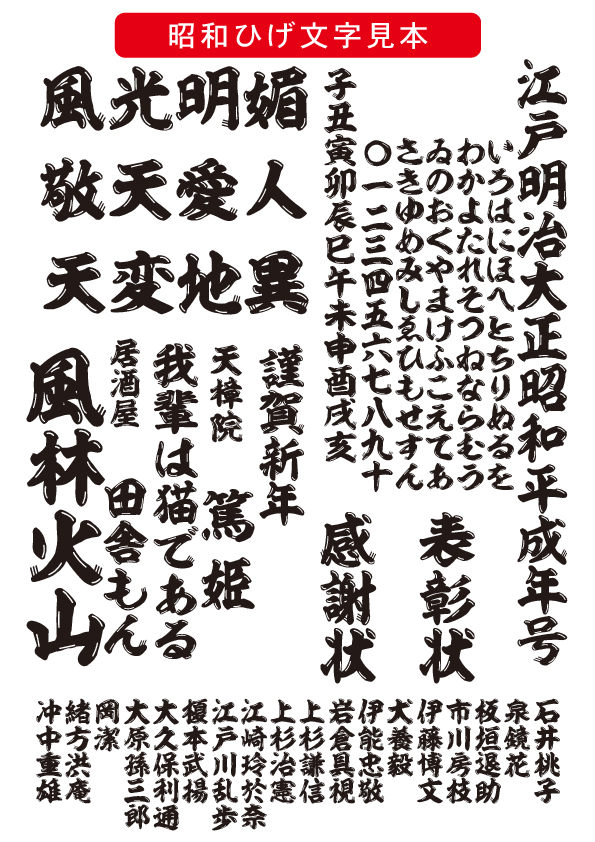 昭和ひげ文字見本
江戸明治大正昭和平成年号
いろはにほへとちりぬるを
わかよたれそつねならむう
ゐのおくやまけふこえてあ
さきゆめみしゑひもせすん
〇一二三四五六七八九十
子丑寅卯辰巳午未申酉戌亥
表彰状
感謝状
風光明媚
敬天愛人
天変地異
謹賀新年
天樟院 篤姫
我輩は猫である
居酒屋 田舎もん
風林火山
石井桃子
泉鏡花
板垣退助
市川房枝
伊藤博文
犬養毅
伊能忠敬
岩倉具視
上杉謙信
上杉治憲
江崎玲於奈
江戸川乱歩
榎本武揚
大久保利通
大原孫三郎
岡潔
緒方洪庵
冲中重雄